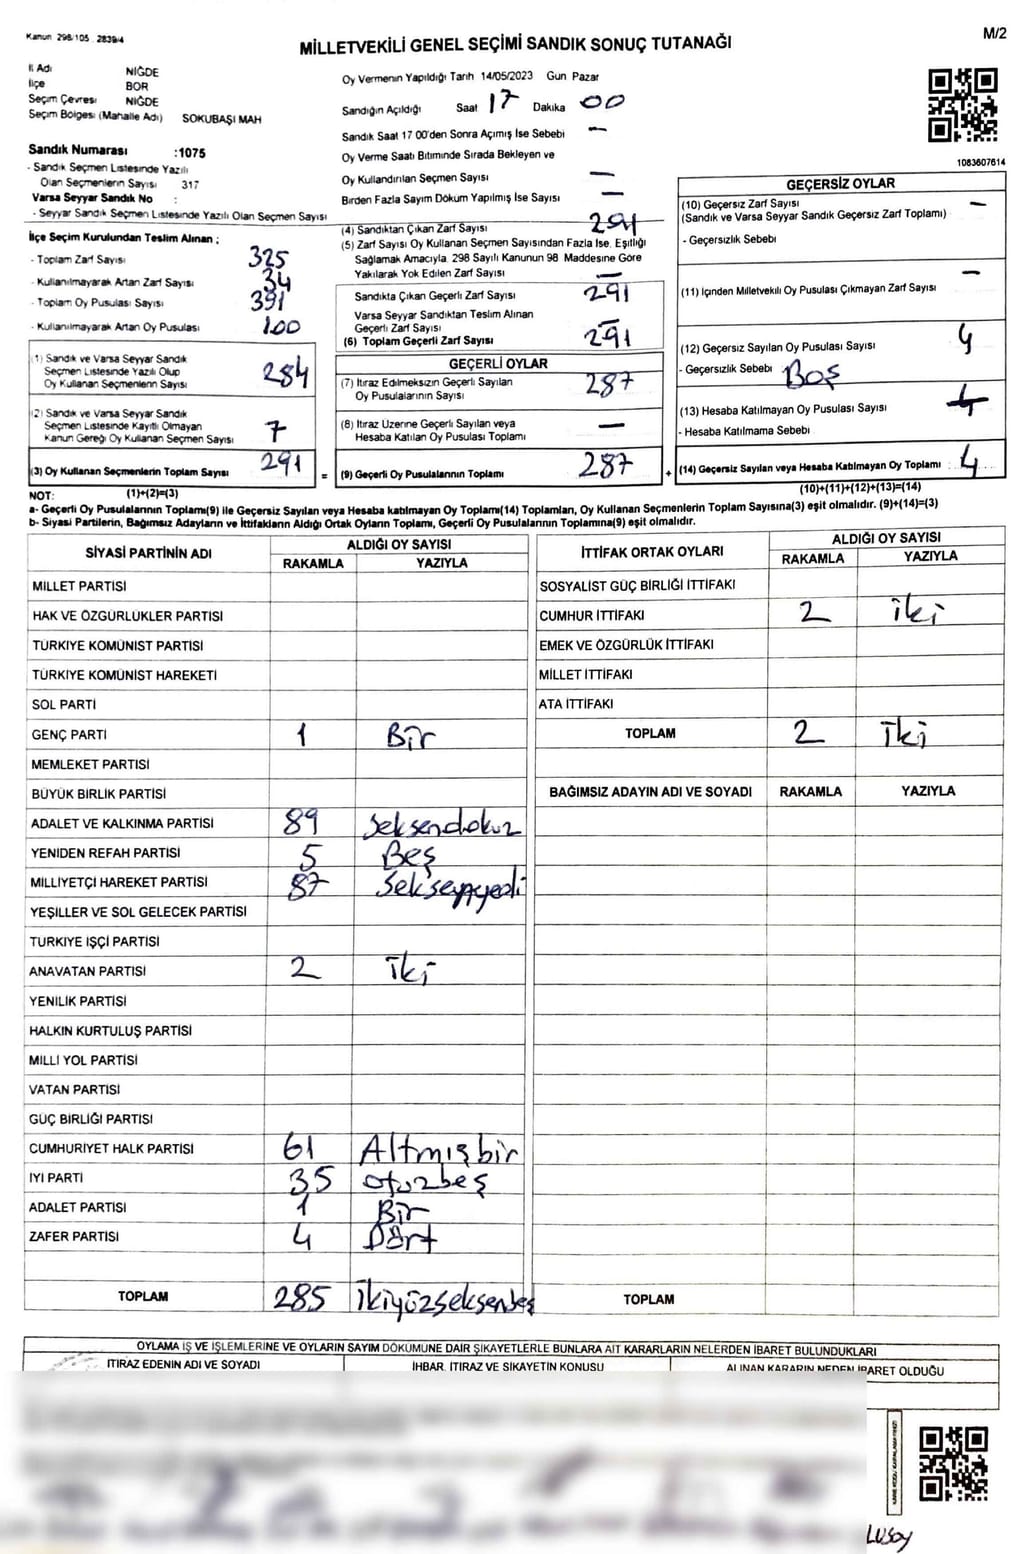 Kanun 298/105 2839/4
M/2
MİLLETVEKİLİ GENEL SEÇİMİ SANDIK SONUÇ TUTANAĞI
İl Adı NİĞDE
İlçe BOR
Seçim Çevresi NİĞDE
Seçim Bölgesi (Mahalle Adı) SOKUBAŞI MAH
Sandık Numarası :1075
- Sandık Seçmen Listesinde Yazılı
Olan Seçmenlerin Sayısı 317
Varsa Seyyar Sandık No :
- Seyyar Sandık Seçmen Listesinde Yazılı Olan Seçmen Sayısı
Oy Vermenin Yapıldığı Tarih 14/05/2023 Gun Pazar
Sandığın Açıldığı Saat 17 Dakika 00
Sandık Saat 17 00'den Sonra Açımış İse Sebebi —
Oy Verme Saati Bitiminde Sırada Bekleyen ve
Oy Kullandırılan Seçmen Sayısı —
Birden Fazla Sayım Döküm Yapılmış İse Sayısı —
1083607614
İlçe Seçim Kurulundan Teslim Alınan ;
- Toplam Zarf Sayısı 325
- Kullanılmayarak Artan Zarf Sayısı 34
- Toplam Oy Pusulası Sayısı 391
- Kullanılmayarak Artan Oy Pusulası 100
(1) Sandık ve Varsa Seyyar Sandık
Seçmen Listesinde Yazılı Olup
Oy Kullanan Seçmenlerin Sayısı 284
(2) Sandık ve Varsa Seyyar Sandık
Seçmen Listesinde Kayıtlı Olmayan
Kanun Gereği Oy Kullanan Seçmen Sayısı 7
(3) Oy Kullanan Seçmenlerin Toplam Sayısı 291 =
(4) Sandıktan Çıkan Zarf Sayısı 291
(5) Zarf Sayısı Oy Kullanan Seçmen Sayısından Fazla İse, Eşitliği
Sağlamak Amacıyla, 298 Sayılı Kanunun 98 Maddesine Göre
Yakılarak Yok Edilen Zarf Sayısı —
Sandıkta Çıkan Geçerli Zarf Sayısı 291
Varsa Seyyar Sandıktan Teslim Alınan
Geçerli Zarf Sayısı —
(6) Toplam Geçerli Zarf Sayısı 291
GEÇERLİ OYLAR
(7) İtiraz Edilmeksizin Geçerli Sayılan
Oy Pusulalarının Sayısı 287
(8) İtiraz Üzerine Geçerli Sayılan veya
Hesaba Katılan Oy Pusulası Toplamı —
(9) Geçerli Oy Pusulalarının Toplamı 287 +
GEÇERSİZ OYLAR
(10) Geçersiz Zarf Sayısı —
(Sandık ve Varsa Seyyar Sandık Geçersiz Zarf Toplamı)
- Geçersizlik Sebebi
(11) İçinden Milletvekili Oy Pusulası Çıkmayan Zarf Sayısı —
(12) Geçersiz Sayılan Oy Pusulası Sayısı 4
- Geçersizlik Sebebi Boş
(13) Hesaba Katılmayan Oy Pusulası Sayısı
- Hesaba Katılmama Sebebi
(14) Geçersiz Sayılan veya Hesaba Katılmayan Oy Toplamı 4
NOT: (1)+(2)=(3) (10)+(11)+(12)+(13)=(14)
a- Geçerli Oy Pusulalarının Toplamı(9) ile Geçersiz Sayılan veya Hesaba katılmayan Oy Toplamı(14) Toplamları, Oy Kullanan Seçmenlerin Toplam Sayısına(3) eşit olmalıdır. (9)+(14)=(3)
b- Siyasi Partilerin, Bağımsız Adayların ve İttifakların Aldığı Ortak Oyların Toplamı, Geçerli Oy Pusulalarının Toplamına(9) eşit olmalıdır.
SİYASİ PARTİNİN ADI ALDIĞI OY SAYISI
RAKAMLA YAZIYLA
MİLLET PARTİSİ
HAK VE ÖZGÜRLÜKLER PARTİSİ
TÜRKİYE KOMÜNİST PARTİSİ
TÜRKİYE KOMÜNİST HAREKETİ
SOL PARTİ
GENÇ PARTİ 1 Bir
MEMLEKET PARTİSİ
BÜYÜK BİRLİK PARTİSİ
ADALET VE KALKINMA PARTİSİ 89 Seksendokuz
YENİDEN REFAH PARTİSİ 5 Beş
MİLLİYETÇİ HAREKET PARTİSİ 87
YEŞİLLER VE SOL GELECEK PARTİSİ
TÜRKİYE İŞÇİ PARTİSİ
ANAVATAN PARTİSİ 2 İki
YENİLİK PARTİSİ
HALKIN KURTULUŞ PARTİSİ
MİLLİ YOL PARTİSİ
VATAN PARTİSİ
GÜÇ BİRLİĞİ PARTİSİ
CUMHURİYET HALK PARTİSİ 61 Altmışbir
İYİ PARTİ 35 otuzbeş
ADALET PARTİSİ 1 Bir
ZAFER PARTİSİ 4 Dört
TOPLAM 285 İkiyüzseksenbeş
İTTİFAK ORTAK OYLARI ALDIĞI OY SAYISI
RAKAMLA YAZIYLA
SOSYALİST GÜÇ BİRLİĞİ İTTİFAKI
CUMHUR İTTİFAKI 2 İki
EMEK VE ÖZGÜRLÜK İTTİFAKI
MİLLET İTTİFAKI
ATA İTTİFAKI
TOPLAM 2 İki
BAĞIMSIZ ADAYIN ADI VE SOYADI RAKAMLA YAZIYLA
TOPLAM
OYLAMA İŞ VE İŞLEMLERİNE VE OYLARIN SAYIM DÖKÜMÜNE DAİR ŞİKAYETLERLE BUNLARA AİT KARARLARIN NELERDEN İBARET BULUNDUKLARI
İTİRAZ EDENİN ADI VE SOYADI İHBAR, İTİRAZ VE ŞİKAYETİN KONUSU ALINAN KARARIN NEDEN İBARET OLDUĞU